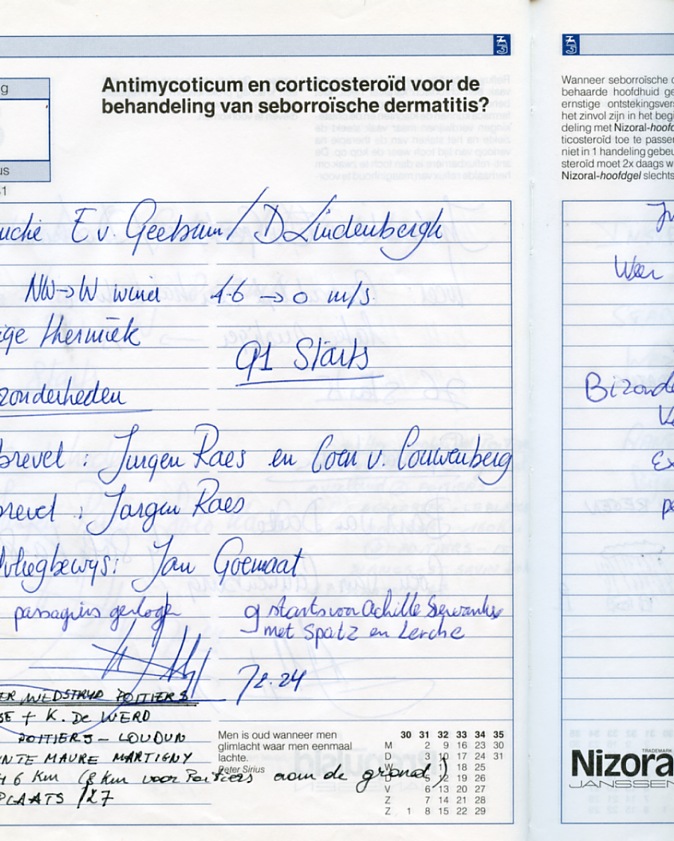 g
Antimycoticum en corticosteroïd voor de
behandeling van seborroïsche dermatitis?
us
E v. Geebsum / D Lindenbergh
NW→W wind 16 → 0 m/s
ige thermiek
91 Starts
zonderheden
brevet : Jurgen Raes en Coen v. Couwenberg
brevet : Jurgen Raes
vliegbewys: Jan Goemaat
9 starts voor Achille
met Spatz en Lerche
72.24
ER WEDSTRYD POITIERS
SE + K. DE WERD
POITIERS - LOUDUN
NTE MAURE MARTIGNY
46 Km (8 km voor Poitiers aan de grond)
PLAATS /27
Men is oud wanneer men
glimlacht waar men eenmaal
lachte.
Peter Sirius
30 31 32 33 34 35
M 2 9 16 23 30
D 3 10 17 24 31
18 25
12 19 26
V 6 13 20 27
Z 7 14 21 28
Z 1 8 15 22 29
Wanneer seborroïsche
behaarde hoofdhuid ge
ernstige ontstekingsver
het zinvol zijn in het beg
deling met Nizoral-hoof
ticosteroïd toe te passe
niet in 1 handeling gebeu
steroïd moet 2x daags w
Nizoral-hoofdgel slechts
Weer
Bizonde
Ex
TRADEMARK
Nizora
JANSSEN